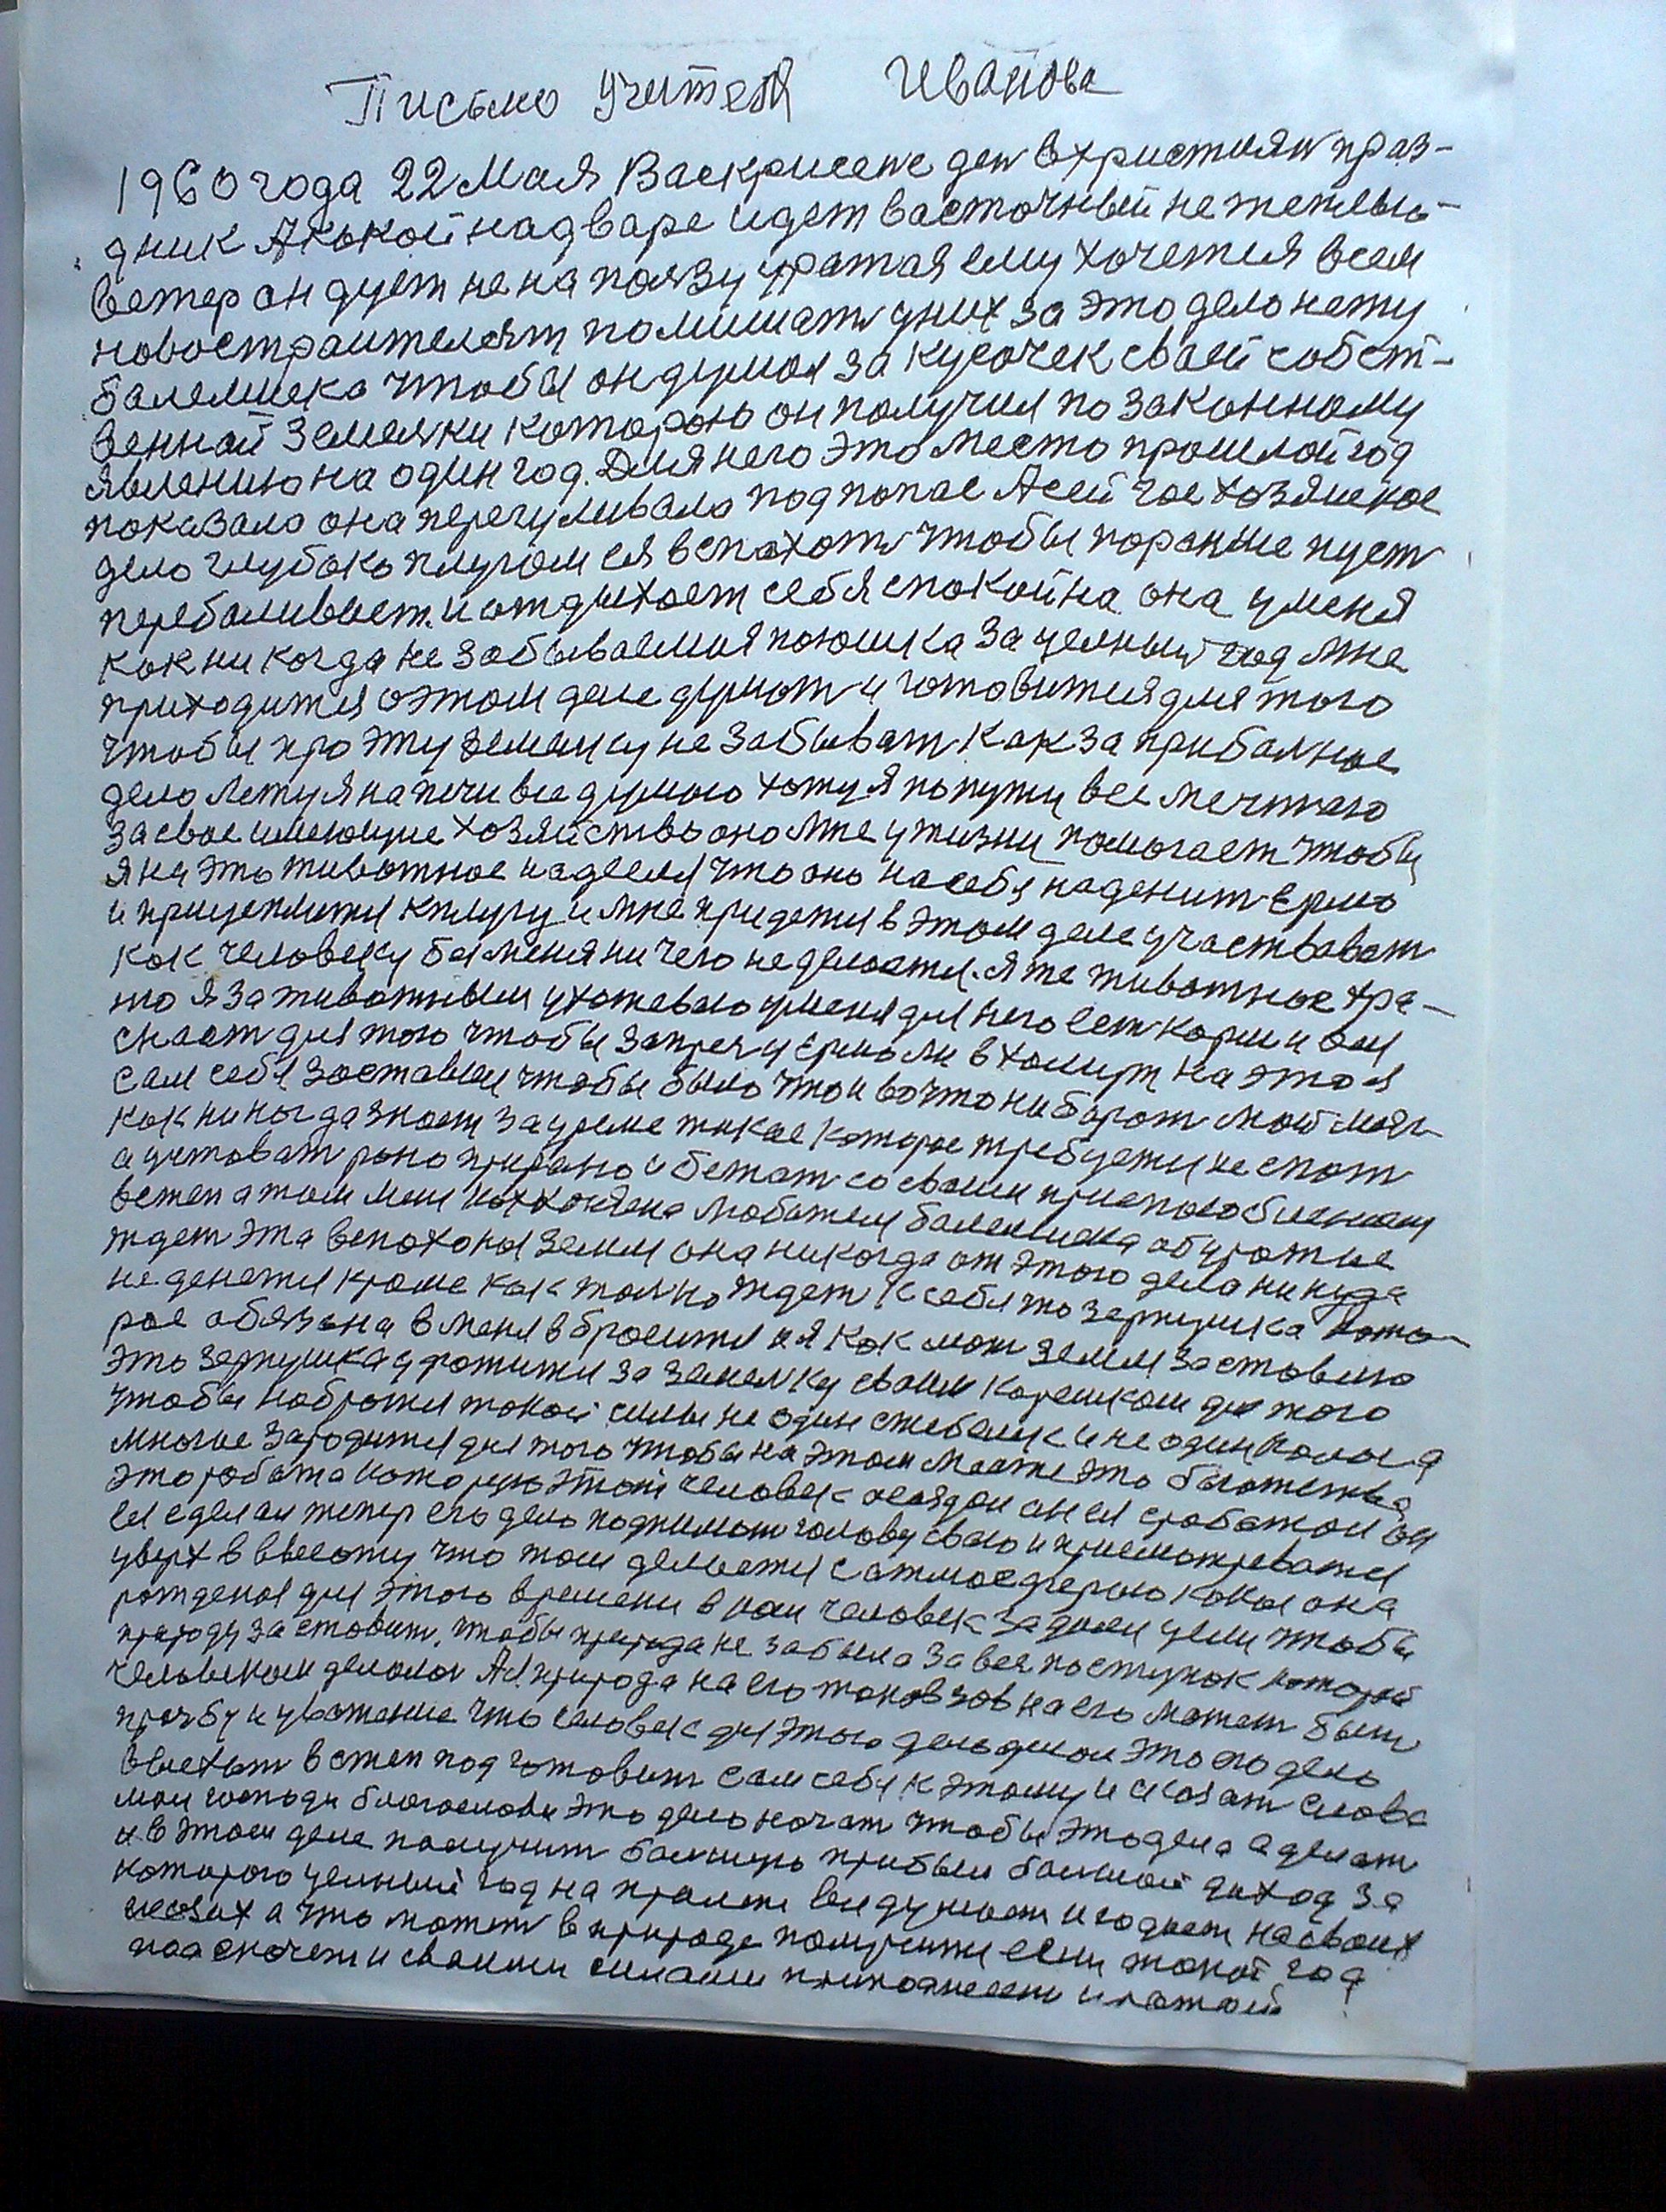 Письмо Учителя Иванова
1960 года 22 Мая Васкрисене ден в християн праз-
дник А какой надваре идет васточный не тёплый
ветер он дует не на ползу уратая ему хочется всем
новостраителям памишать у них за это дело нету
балелшека чтобы он думал за кусочек сваей собст-
венной землячки которою он получил по законному
явлению на один год. Для него это место прошлой год
показало она перегуливала под попас А сейчас хозяиское
дело глубоко плугом ея вспахать чтобы поранше пуст
перебаливает и отдыхает себя спокойна она у меня
как никогда не забываемая полюшка за целный год мне
приходится о этом деле думат и готовится для того
чтобы про эту землицу не забыват как за прибалное
дело Лежу я на печи все думаю хожу я по пути все мечтаю
за свое имеющие хозяйство оно мне у жизни помогает чтобы
я на это животное надеелся что оно на себя наденит ермо
и прицепится к плугу и мне придется в этом деле участвоват
как человеку без меня ничего не делается. А те животные хра-
ню я за животным ухажеваю у меня для него ест корм и
снаст для того чтобы запреч у ермо ли в хомут на это я
сам себя заставлял чтобы было что и во что ни борот мой
как никогда знает за время такое которое требуется не спат
а устават рано и бежат со своим приспособлением
в степ а там
ждет эта вспахоная земля она никогда от этого дела никуда
не денется кроме как толко ждет к себя то зернушка кото-
рое обязана в меня вбросится и я как мат земля заставлю
это зернушка удражится за землку сваим корешком для того
чтобы набратся такой силы не один стебелик и не один колос а
многие зародится для того чтобы на этом месте это
эта работа которую этот человек
ея сделал тепер его дело поднимат голову сваю и присматреватся
уверх в высоту что там делается с атмосферою какая она
рожденая для этого времени в нам человек задался цели чтобы
природу заставит, чтобы природа не забыла за вся поступок которой
человеком делался А природа на его может быт
прозбу и уважение что человек для этого дела думал это его дело
выехат в степ подготовит сам себя к этому и сказат слова
мои господи благослови это дело начат чтобы это дела сделат
и в этом деле получит болшую прибыл болшой доход за
которого целный год на прамети все думает и гадает на своих
глазах а что может в природе получится если такой год
паа скочет и сваими силами